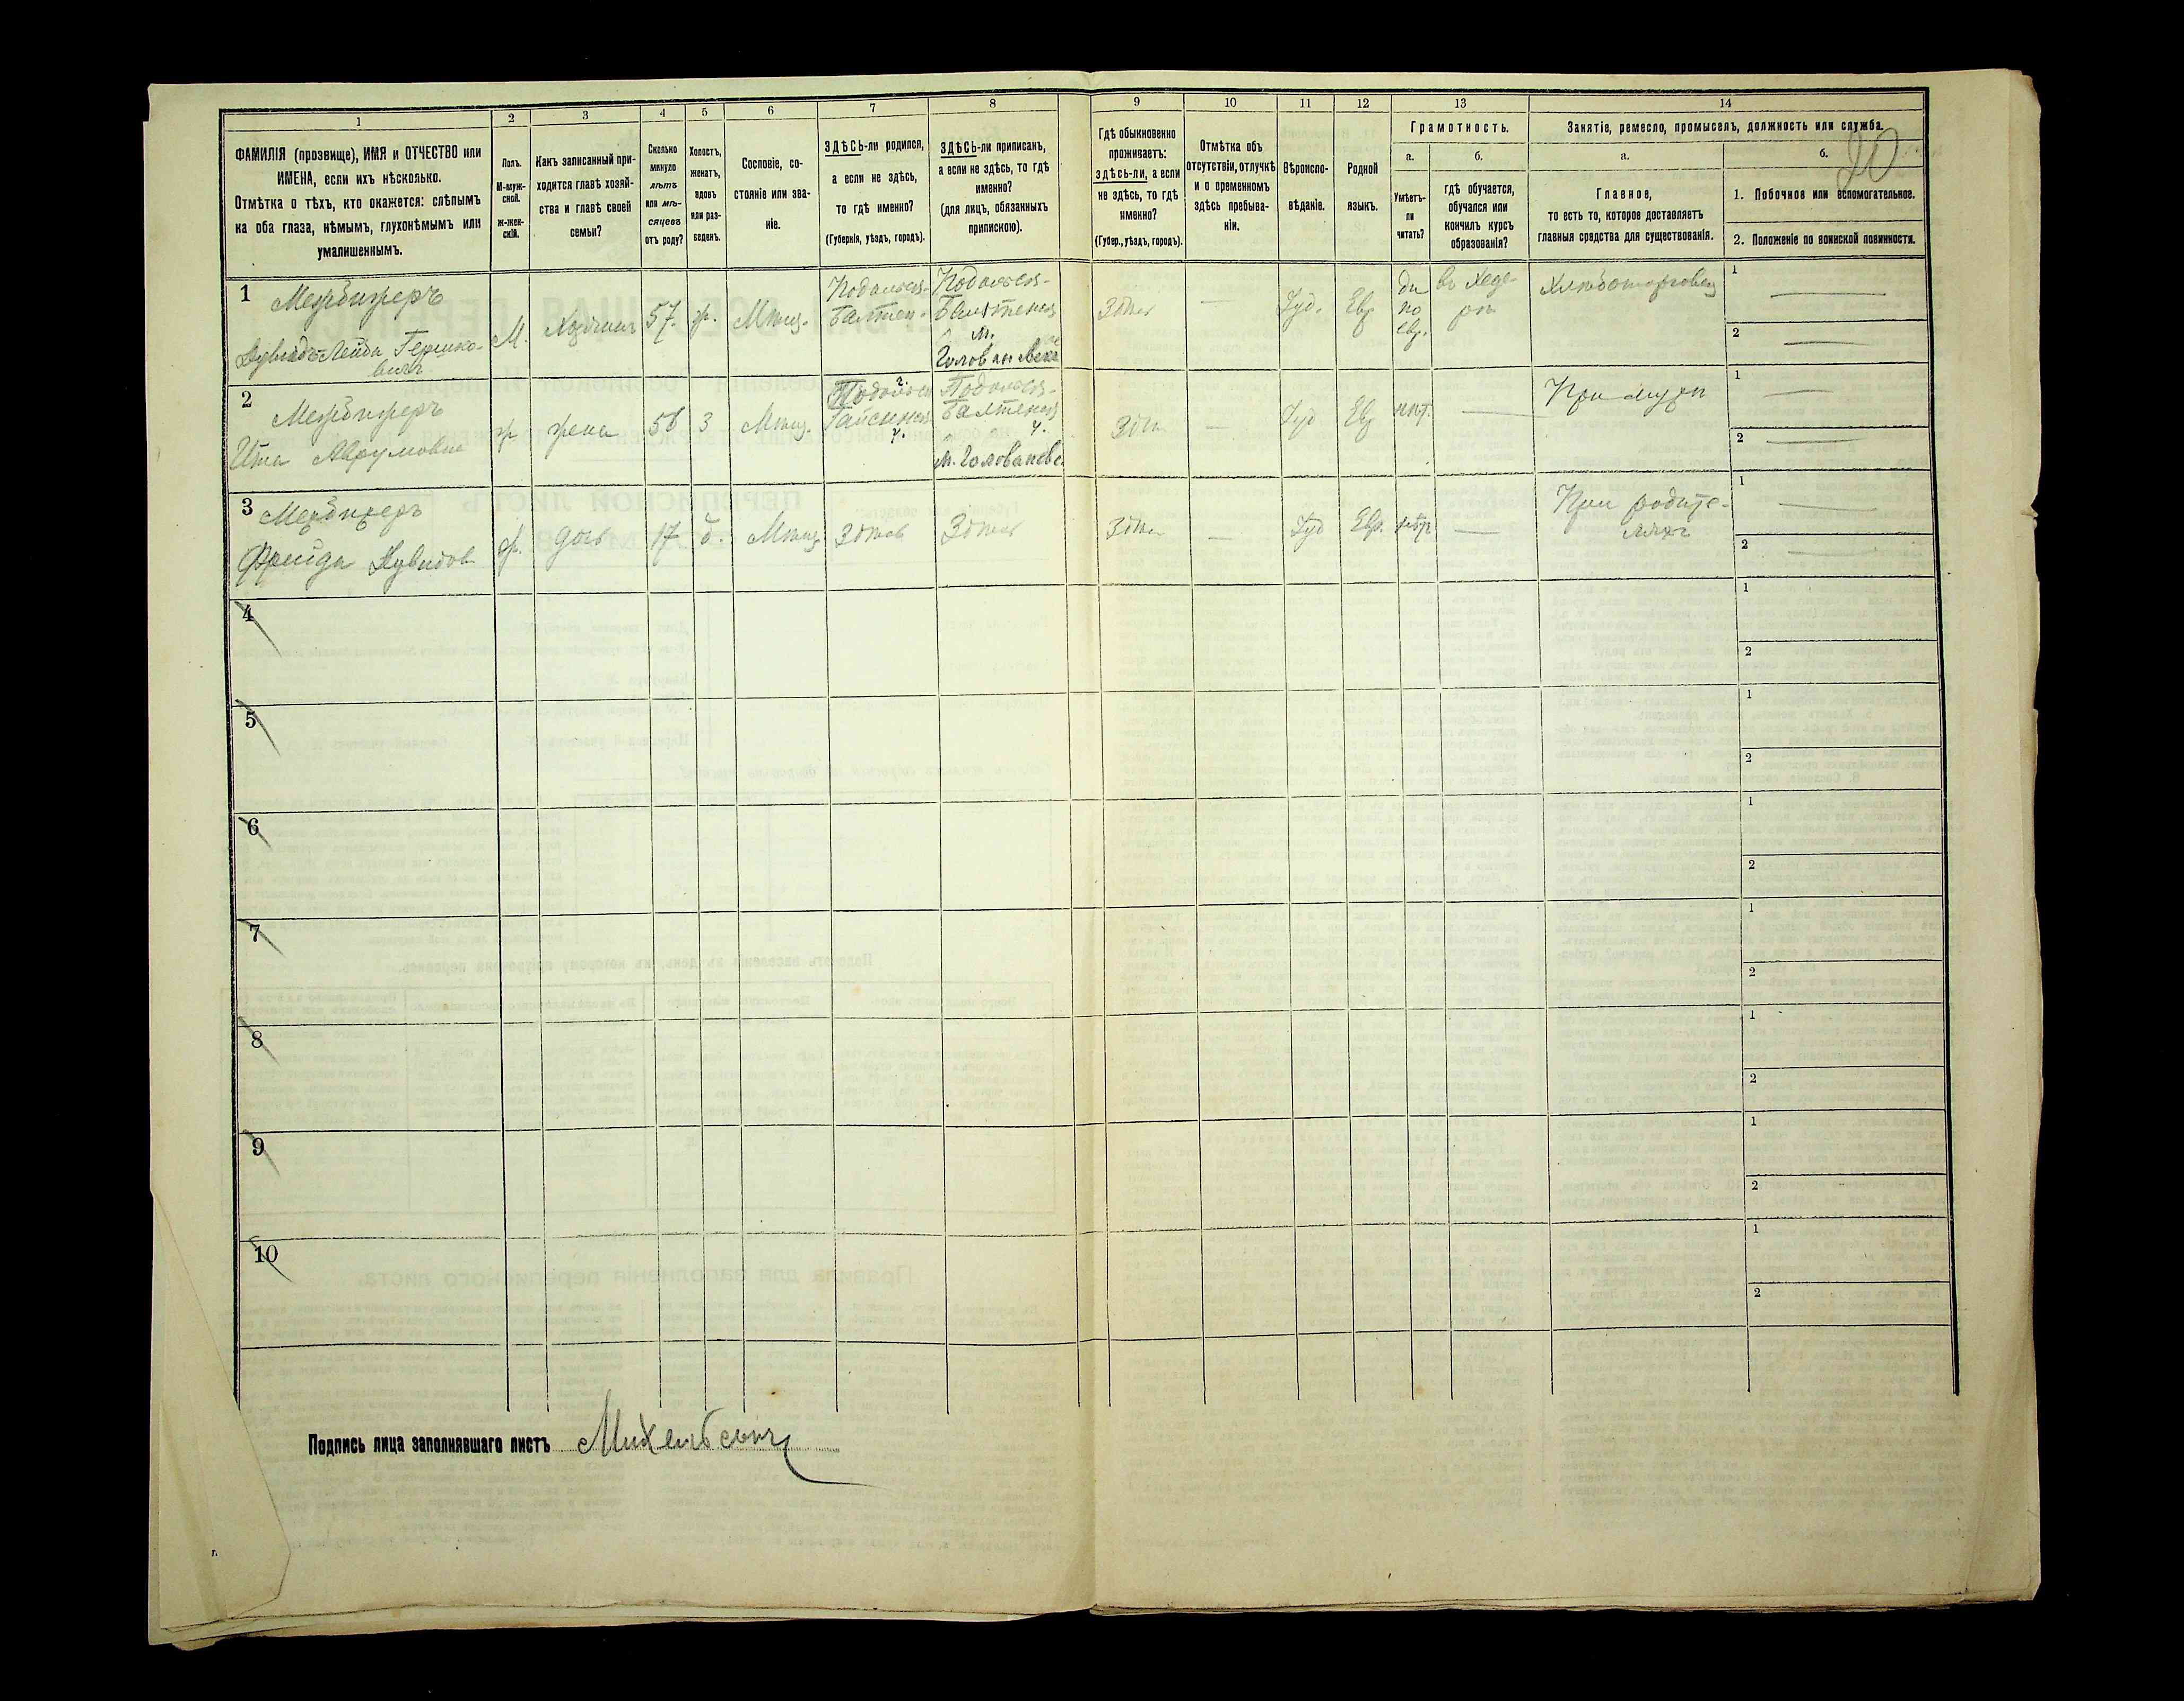 1
2
3
4
5
6
7
8
9
10
11
12
13
14
ФАМИЛІЯ (прозвище), ИМЯ и ОТЧЕСТВО или
ИМЕНА, если ихъ нѣсколько.
Отмѣтка о тѣхъ, кто окажется: слѣпымъ
на оба глаза, нѣмымъ, глухонѣмымъ или
умалишеннымъ.
Полъ.
М-муж-
ской.
Ж-жен-
скій.
Какъ записанный при-
ходится главѣ хозяй-
ства и главѣ своей
семьи?
Сколько
минуло
лѣтъ
или мѣ-
сяцевъ
отъ роду?
Холостъ,
женатъ,
вдовъ
или раз-
веденъ.
Сословіе, со-
стояніе или зва-
ніе.
ЗДѢСЬ-ли родился,
а если не здѣсь,
то гдѣ именно?
(Губернія, уѣздъ, городъ).
ЗДѢСЬ-ли приписанъ,
а если не здѣсь, то гдѣ
именно?
(для лицъ, обязанныхъ
припискою).
Гдѣ обыкновенно
проживаетъ:
здѣсь-ли, а если
не здѣсь, то гдѣ
именно?
(Губер., уѣздъ, городъ).
Отмѣтка объ
отсутствіи, отлучкѣ
и о временномъ
здѣсь пребыва-
ніи.
Вѣроиспо-
вѣданіе.
Родной
языкъ.
Грамотность.
а.
Умѣетъ-
ли
читать?
б.
гдѣ обучается,
обучался или
кончилъ курсъ
образованія?
Занятіе, ремесло, промыселъ, должность или служба.
20
а.
Главное,
то есть то, которое доставляетъ
главныя средства для существованія.
б.
1. Побочное или вспомогательное.
2. Положеніе по воинской повинности.
1
Межбижеръ
Гершко-
вичъ
М.
Хозяинъ
57.
ж.
Мѣщ.
Подольск-
Балтск-
Подольск-
Балтскій
м.
Здѣсь
—
Іуд.
Евр
да
по
евр.
въ Хеде-
рѣ
Хлѣботорговец
1
—
2
—
2
Межбижеръ
Ита Аврумовна
ж
жена
56
З
Мѣщ.
Гайсинск
у.
Подольск-
Балтскій
у.
м. Голованевс.
Здѣсь
—
Іуд
Евр
нѣт.
—
При мужѣ
1
—
2
—
3
Межбижеръ
Фрейда
ж.
дочь
17
д.
Мѣщ
Здѣсь
Здѣсь
Здѣсь
—
Іуд
Евр.
нѣт
—
При родите-
ляхъ
1
—
2
—
4
1
2
5
1
2
6
1
2
7
1
2
8
1
2
9
1
2
10
1
2
Подпись лица заполнявшаго листъ